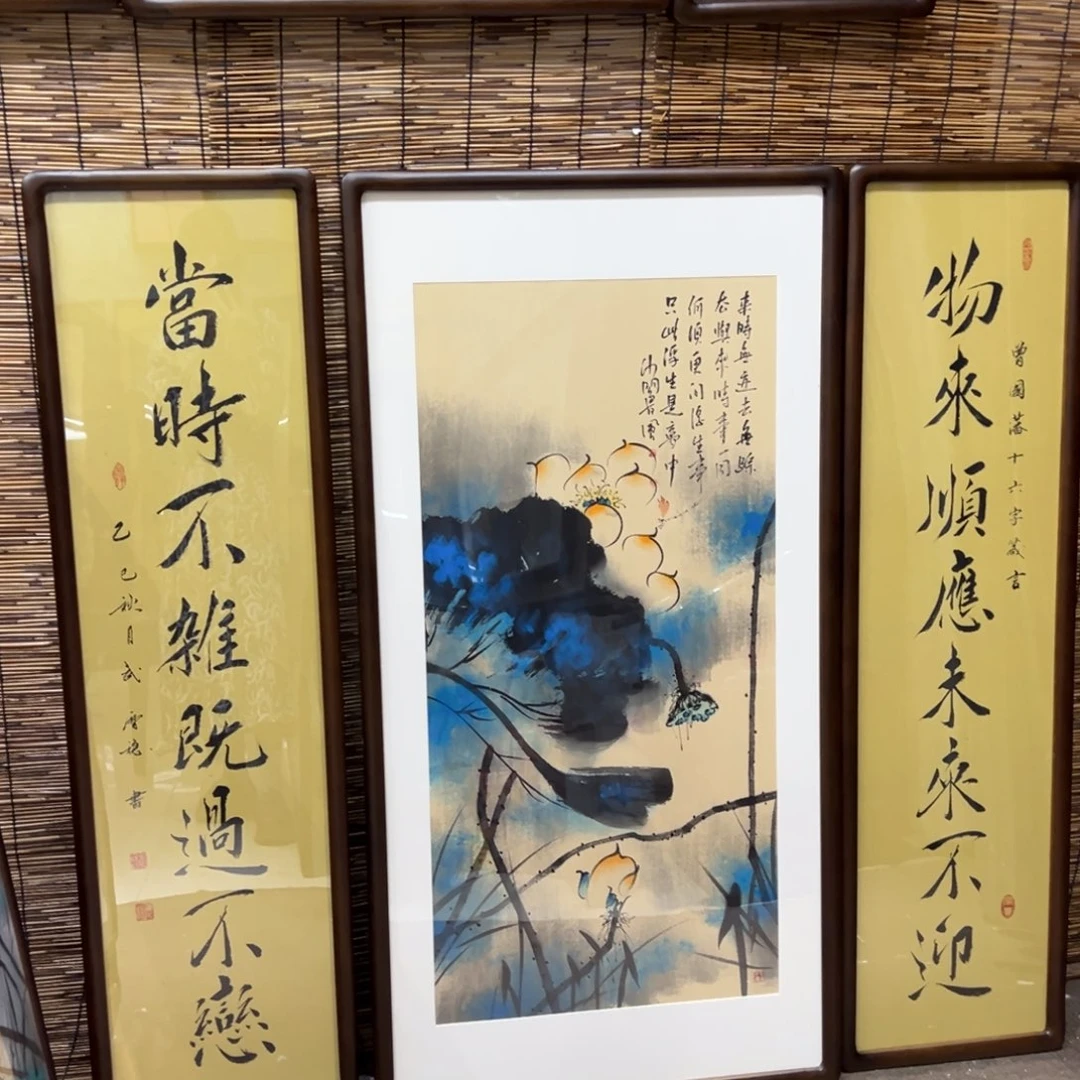 物來順應未來不迎
曾國藩十六字箴言
來時無迹去無蹤
去與來時事一同
何須更問浮生事
只此浮生是夢中
當時不雜既過不戀
乙巳秋月武
書